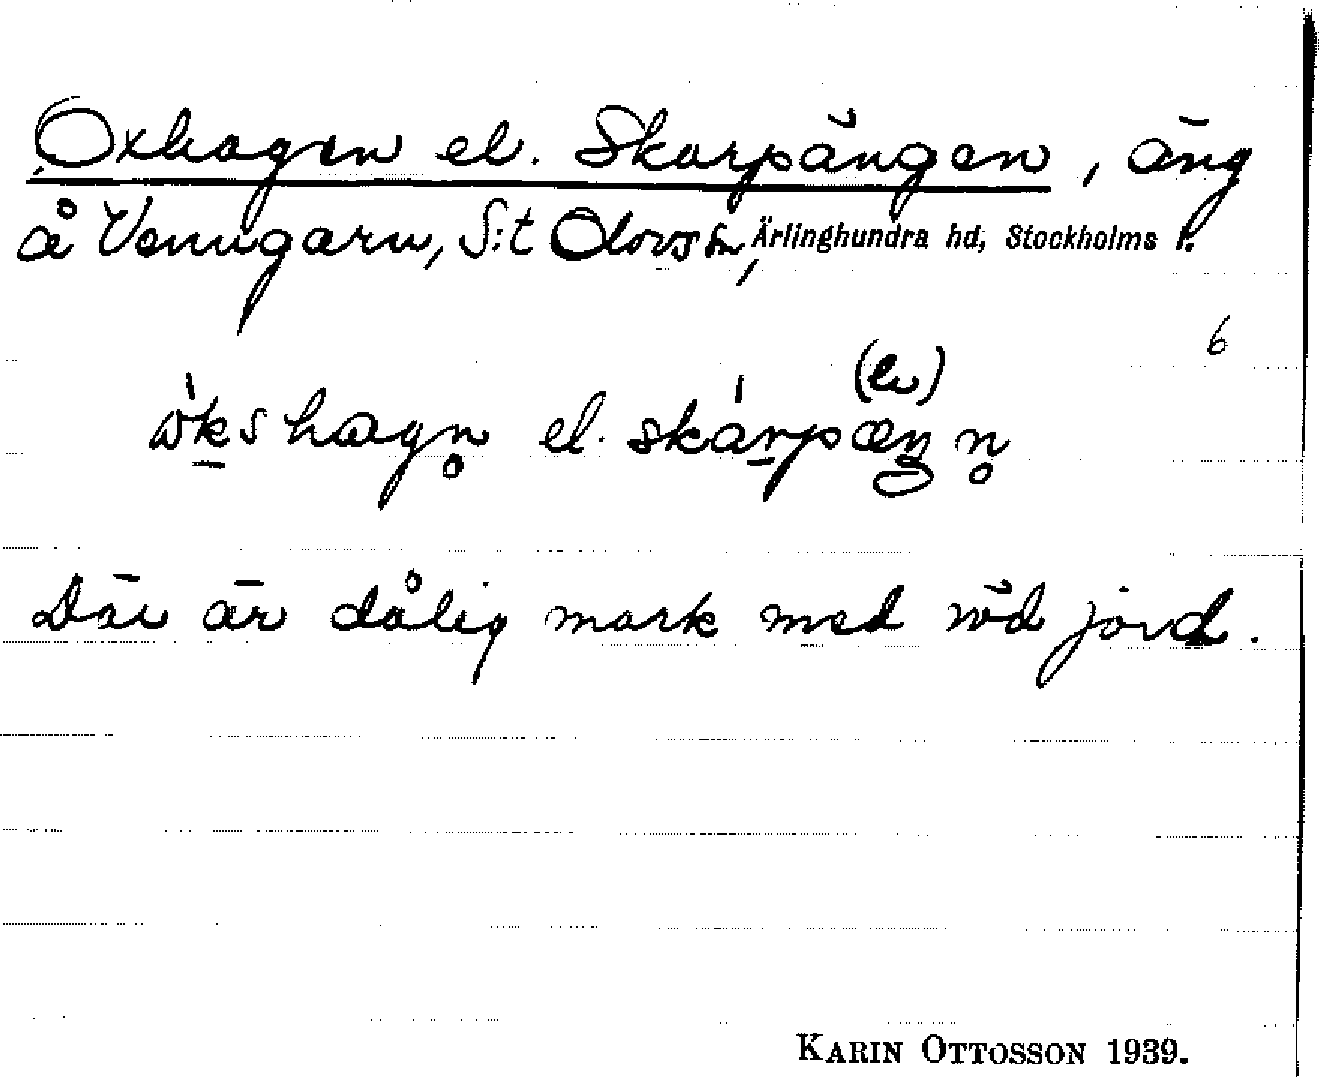 Oxhagen el. Skarpängen, äng
å Venngarn, S:t Olovs sn, Ärlinghundra hd, Stockholms l.
6
(ɛ)
ökshagn̥ el. skárpæŋn̥
Där är dålig mark med röd jord.
KARIN OTTOSSON 1939.